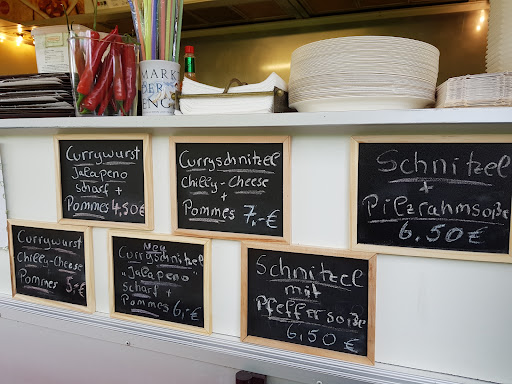 MARK
BER
ENG
Currywurst
Jalapeno
scharf +
Pommes 4,50€
Curryschnitzel
Chilly-Cheese
+
Pommes 7,-€
Schnitzel
+
Pilzrahmsoße
6,50€
Currywurst
Chilly-Cheese
+
Pommes 5,-€
Neu
Curryschnitzel
"Jalapeno"
scharf +
Pommes 6,-€
Schnitzel
mit
Pfeffersoße
6,50€